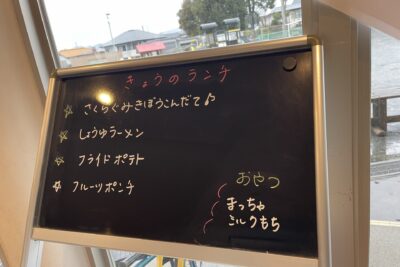 きょうのランチ
☆ さくらぐみきぼうこんだて♪
☆ しょうゆラーメン
☆ フライドポテト
☆ フルーツポンチ
おやつ
まっちゃ
ミルクもち